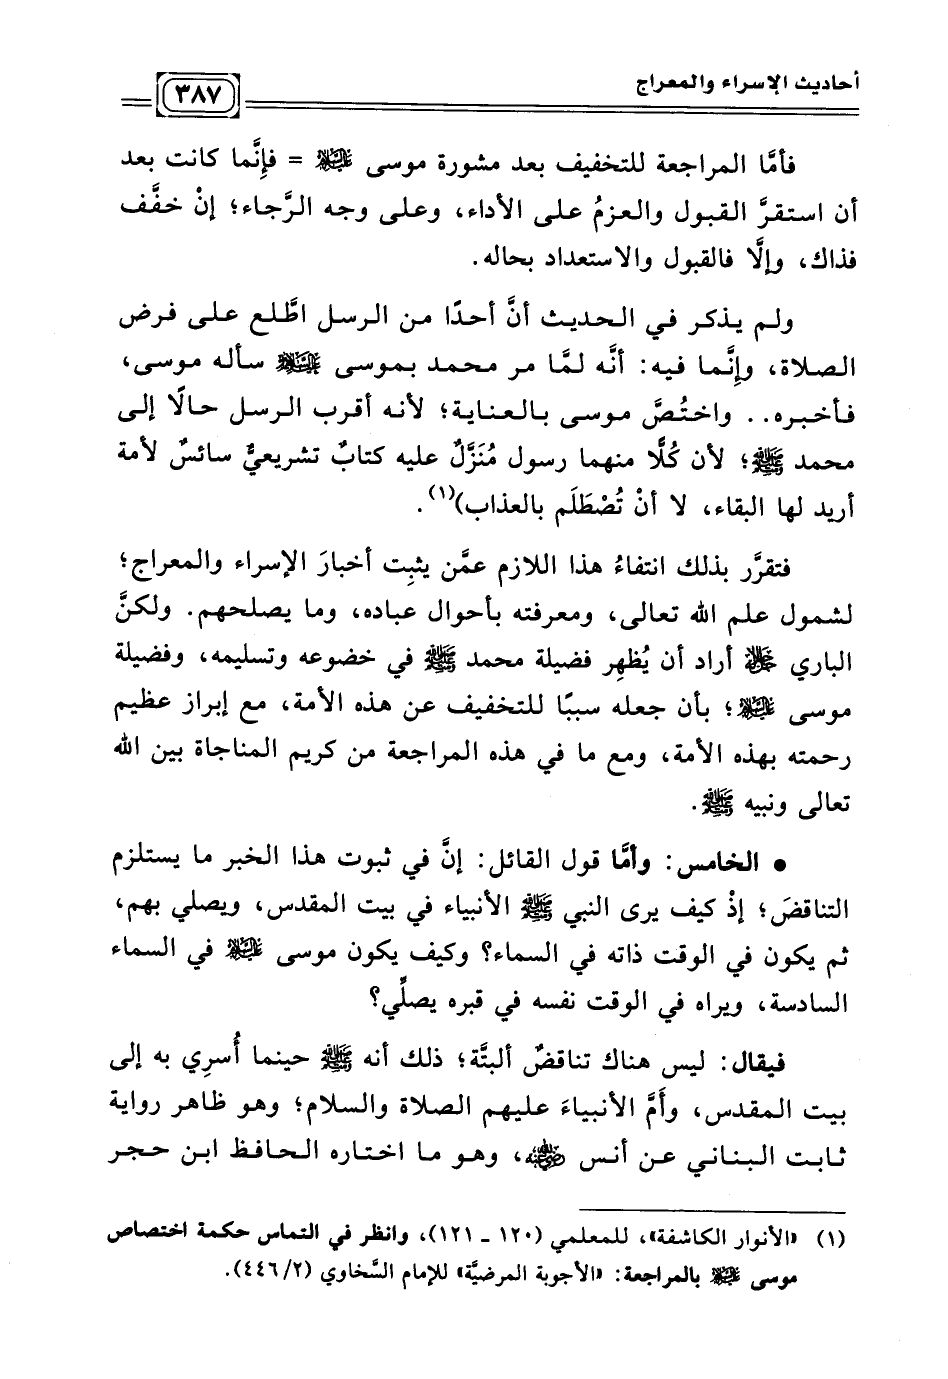 أحاديث الإسراء والمعراج
٣٨٧
فأمَّا المراجعة للتخفيف بعد مشورة موسى عليه السلام = فإنَّما كانت بعد
أن استقرَّ القبول والعزمُ على الأداء، وعلى وجه الرَّجاء؛ إنْ خفَّف
فذاك، وإلَّا فالقبول والاستعداد بحاله.
ولم يذكر في الحديث أنَّ أحدًا من الرسل اطَّلع على فرض
الصلاة، وإنَّما فيه: أنَّه لمَّا مر محمد بموسى عليهما السلام سأله موسى،
فأخبره.. واختُصَّ موسى بالعناية؛ لأنه أقرب الرسل حالًا إلى
محمد ﷺ؛ لأن كُلًّا منهما رسول مُنَزَّلٌ عليه كتابٌ تشريعيٌّ سائسٌ لأمة
أريد لها البقاء، لا أنْ تُصْطَلَم بالعذاب)(١).
فتقرَّر بذلك انتفاءُ هذا اللازم عمَّن يثبِت أخبارَ الإسراء والمعراج؛
لشمول علم الله تعالى، ومعرفته بأحوال عباده، وما يصلحهم. ولكنَّ
الباري ﷻ أراد أن يُظهِر فضيلة محمد ﷺ في خضوعه وتسليمه، وفضيلة
موسى عليه السلام؛ بأن جعله سببًا للتخفيف عن هذه الأمة، مع إبراز عظيم
رحمته بهذه الأمة، ومع ما في هذه المراجعة من كريم المناجاة بين الله
تعالى ونبيه ﷺ.
• الخامس: وأمَّا قول القائل: إنَّ في ثبوت هذا الخبر ما يستلزم
التناقضَ؛ إذْ كيف يرى النبي ﷺ الأنبياء في بيت المقدس، ويصلي بهم،
ثم يكون في الوقت ذاته في السماء؟ وكيف يكون موسى عليه السلام في السماء
السادسة، ويراه في الوقت نفسه في قبره يصلِّي؟
فيقال: ليس هناك تناقضٌ ألبتَّة؛ ذلك أنه ﷺ حينما أُسرِي به إلى
بيت المقدس، وأَمَّ الأنبياءَ عليهم الصلاة والسلام؛ وهو ظاهر رواية
ثابت البناني عن أنس رضي الله عنه، وهو ما اختاره الحافظ ابن حجر
(١) «الأنوار الكاشفة»، للمعلمي (١٢٠ - ١٢١)، وانظر في التماس حكمة اختصاص
موسى عليه السلام بالمراجعة: «الأجوبة المرضيَّة» للإمام السَّخاوي (٤٤٦/٢).